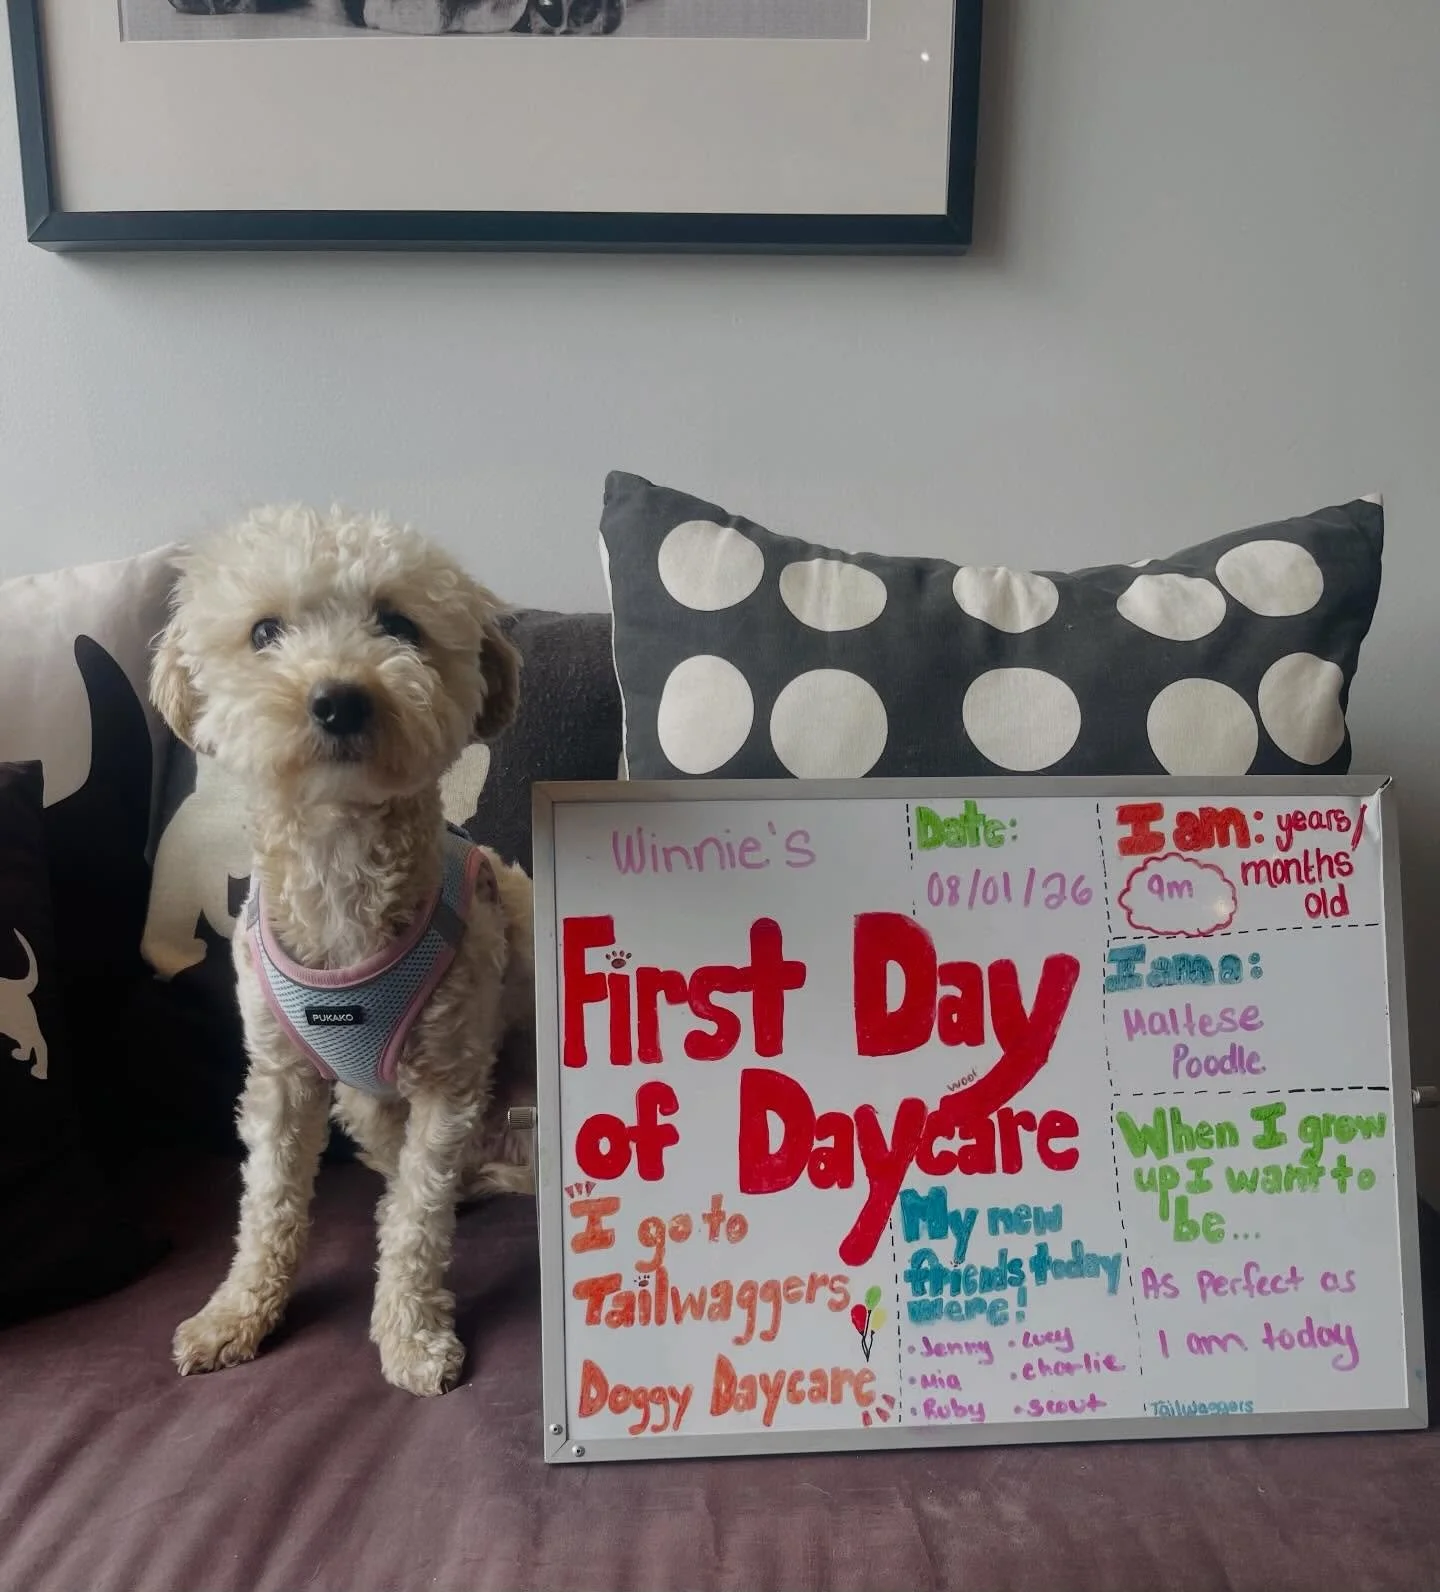 PUKAKO
Winnie's
First Day
of Daycare
woof
I go to
Tailwaggers
Doggy Daycare
Date:
08/01/26
I am: years/
months
old
9m
I am a:
Maltese
Poodle
When I grow
up I want to
be...
As perfect as
I am today
My new
friends today
were!
• Jenny • Lucy
• Mia • Charlie
• Ruby • Scout
Tailwaggers